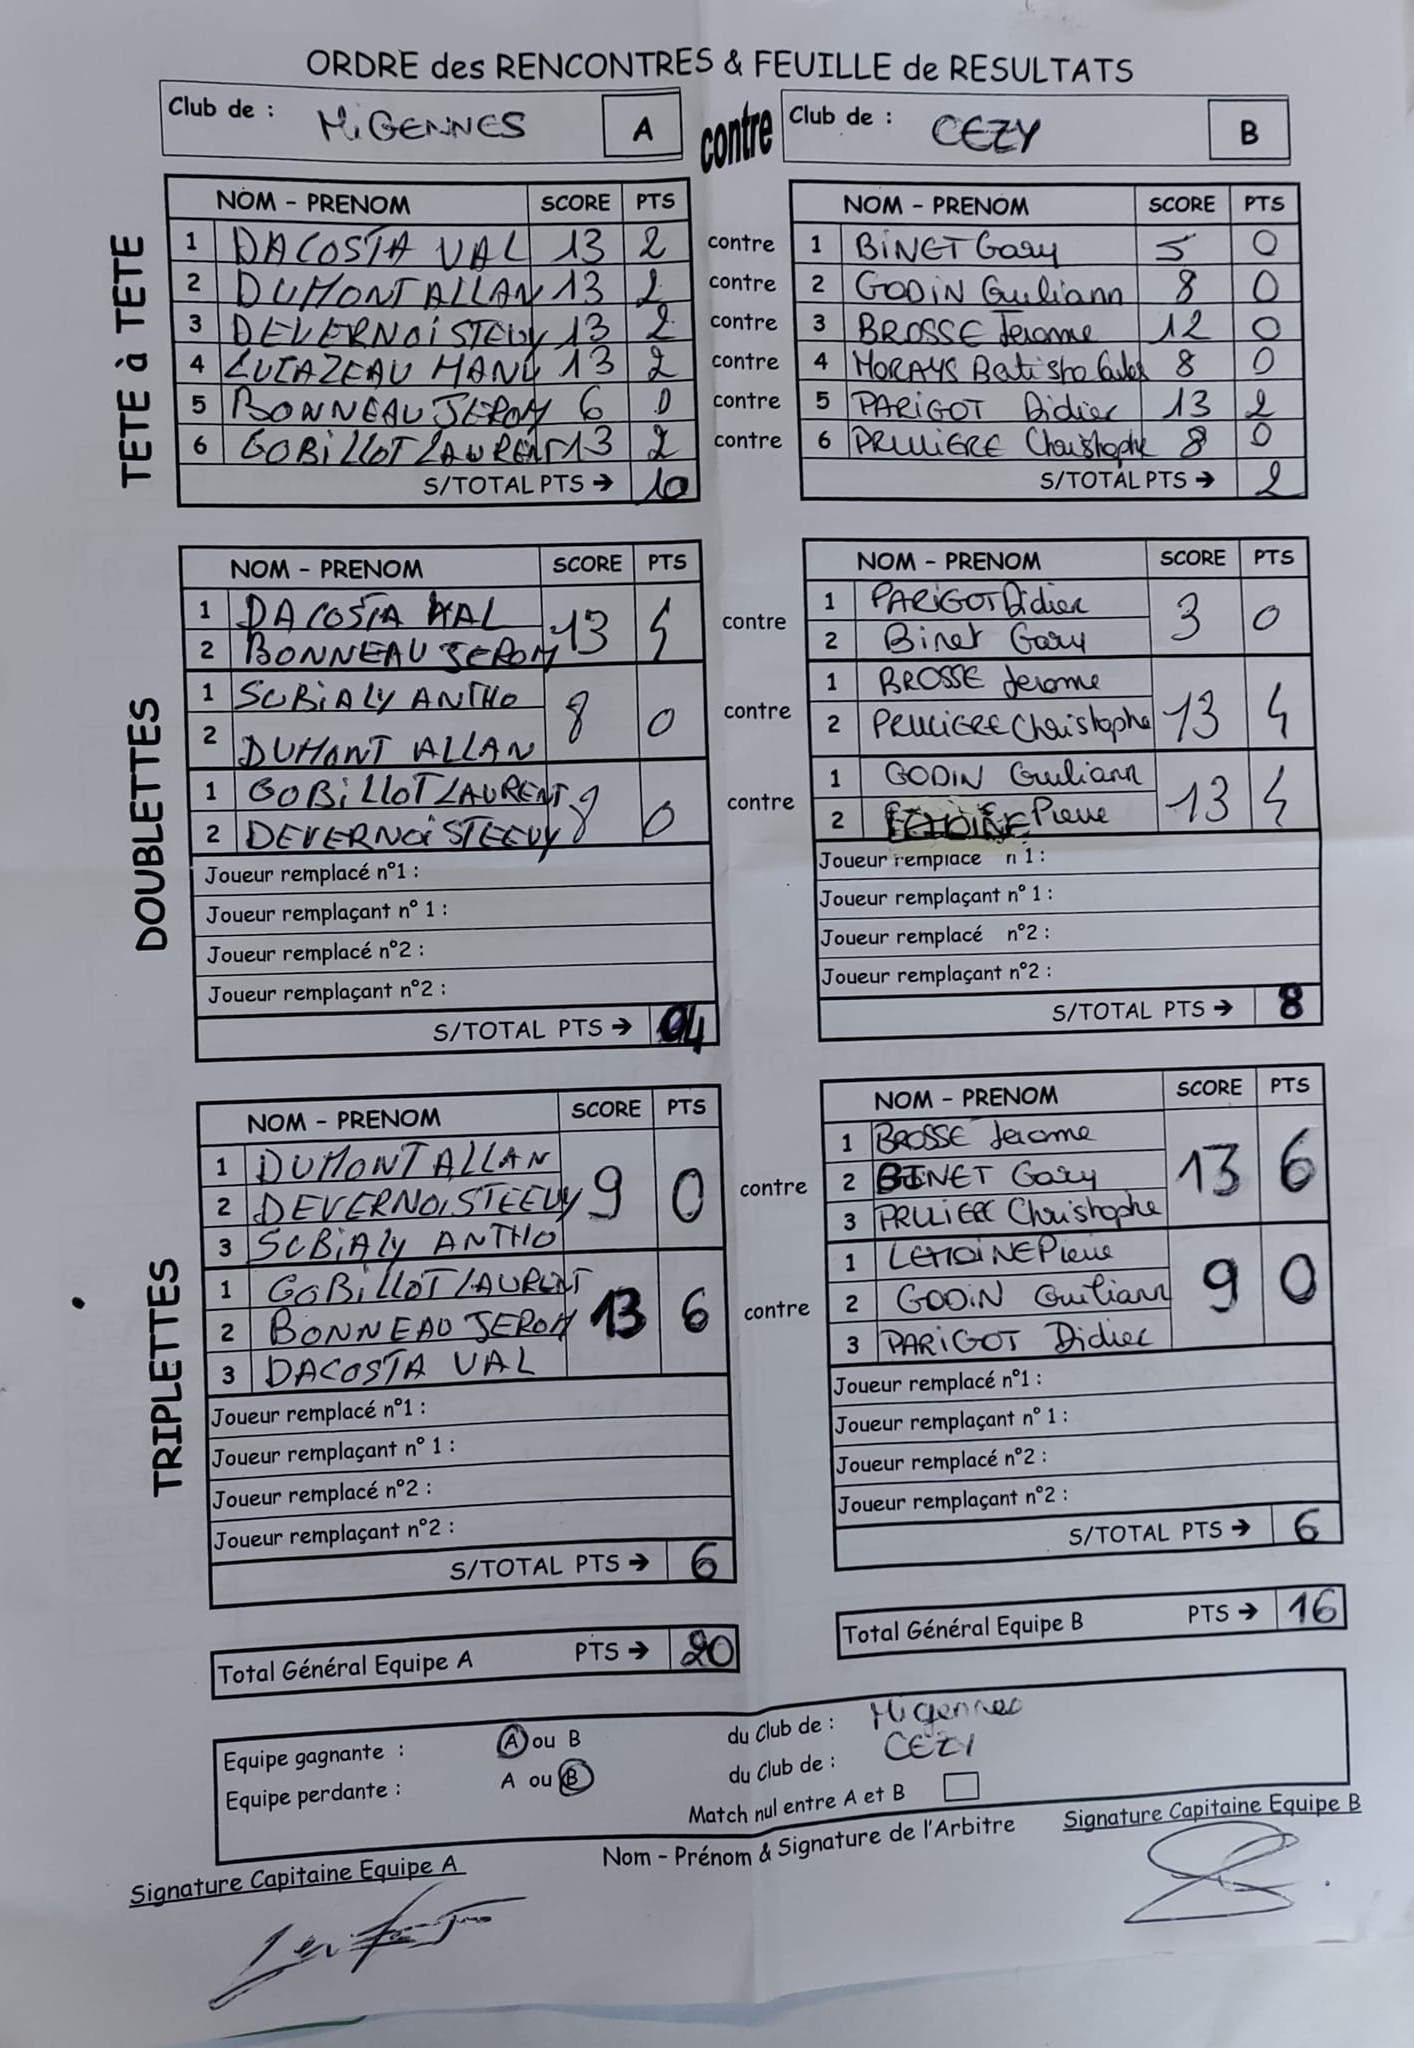 ORDRE des RENCONTRES & FEUILLE de RESULTATS
Club de : MiGENNES A contre Club de : CEZY B
TETE à TETE
NOM - PRENOM SCORE PTS NOM - PRENOM SCORE PTS
1 DACOSTA VAL 13 2 contre 1 BINET Gary 5 0
2 DUMONT ALLAN 13 2 contre 2 GODIN Guiliann 8 0
3 DEVERNOiS TEEVY 13 2 contre 3 BROSSE Jerome 12 0
4 LUCAZEAU MANU 13 2 contre 4 MORAYS Batista 8 0
5 BONNEAU JEROM 6 0 contre 5 PARIGOT Didier 13 2
6 GOBILLOT LAURENT 13 2 contre 6 PRULIERE Christophe 8 0
S/TOTAL PTS → 10 S/TOTAL PTS → 2
DOUBLETTES
NOM - PRENOM SCORE PTS NOM - PRENOM SCORE PTS
1 DACOSTA VAL 13 4 contre 1 PARIGOT Didier 3 0
2 BONNEAU JEROM 2 Binet Gary
1 SOBIALY ANTHO 8 0 contre 1 BROSSE Jerome 13 4
2 DUMONT ALLAN 2 PRULIERE Christophe
1 GOBILLOT LAURENT 8 0 contre 1 GODIN Guiliann 13 4
2 DEVERNOiS TEEVY 2 LEMOINE Pierre
Joueur remplacé n°1 : Joueur remplacé n°1 :
Joueur remplaçant n° 1 : Joueur remplaçant n° 1 :
Joueur remplacé n°2 : Joueur remplacé n°2 :
Joueur remplaçant n°2 : Joueur remplaçant n°2 :
S/TOTAL PTS → 04 S/TOTAL PTS → 8
TRIPLETTES
NOM - PRENOM SCORE PTS NOM - PRENOM SCORE PTS
1 DUMONT ALLAN 9 0 contre 1 BROSSE Jerome 13 6
2 DEVERNOiS TEEVY 2 BINET Gary
3 SOBIALY ANTHO 3 PRULIERE Christophe
1 GOBILLOT LAURENT 13 6 contre 1 LEMOINE Pierre 9 0
2 BONNEAU JEROM 2 GODIN Guiliann
3 DACOSTA VAL 3 PARIGOT Didier
Joueur remplacé n°1 : Joueur remplacé n°1 :
Joueur remplaçant n° 1 : Joueur remplaçant n° 1 :
Joueur remplacé n°2 : Joueur remplacé n°2 :
Joueur remplaçant n°2 : Joueur remplaçant n°2 :
S/TOTAL PTS → 6 S/TOTAL PTS → 6
Total Général Equipe A PTS → 20 Total Général Equipe B PTS → 16
Equipe gagnante : A ou B du Club de : Migennes
Equipe perdante : A ou B du Club de : CEZY
Match nul entre A et B
Signature Capitaine Equipe A Nom - Prénom & Signature de l'Arbitre Signature Capitaine Equipe B